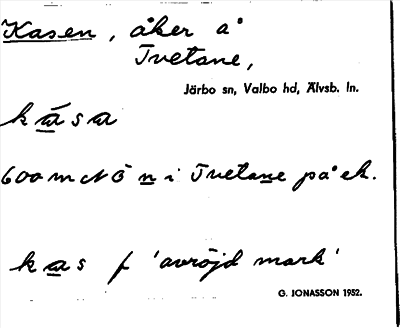 Kasen, åker å
Tvetane,
Järbo sn, Valbo hd, Älvsb. ln.
kása
600 m NÖ n i Tvetane på ek.
kas f 'avröjd mark'
G. JONASSON 1952.